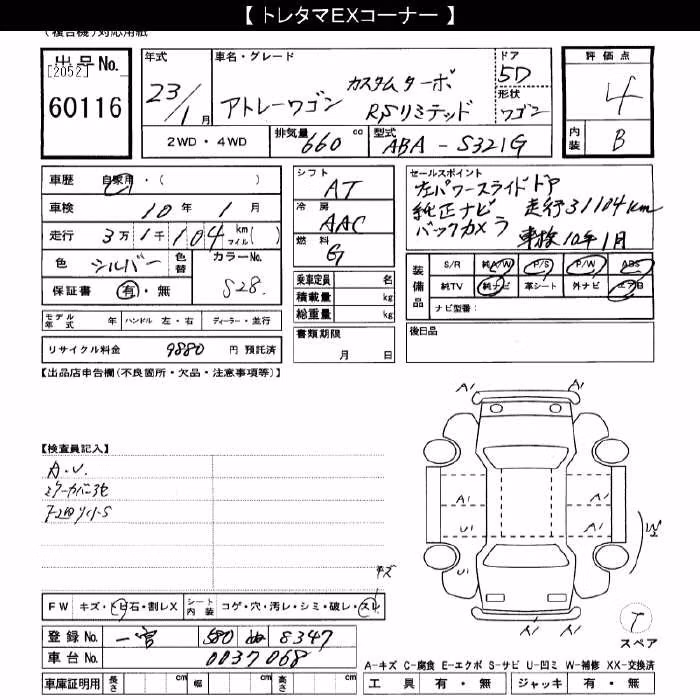 【 トレタマEXコーナー 】
(複合機)対応用紙
出品No.
[2052]
60116
年式
23/1月
車名・グレード
アトレーワゴン
カスタムターボ
RSリミテッド
ドア
5D
形状
ワゴン
評価点
4
内装
B
2WD・4WD
排気量 660 cc
型式 ABA - S321G
車歴 自家用・( )
車検 10年 1月
走行 3万1千104 km マイル( )
色 シルバー 色替
カラーNo. S28
保証書 有・無
モデル年式 年 ハンドル 左・右 ディーラー・並行
リサイクル料金 9880 円 預託済
シフト
AT
冷房
AAC
燃料
G
乗車定員 名
積載量 kg
総重量 kg
書類期限
月 日
セールスポイント
左パワースライドドア
純正ナビ 走行31104km
バックカメラ 車検10年1月
装備品
S/R 純A/W P/S P/W ABS
純TV 純ナビ 革シート 外ナビ エアB
ナビ型番:
後日品
【出品店申告欄(不良箇所・欠品・注意事項等)】
【検査員記入】
A.U.
ミラーカバー3色
キズ
FW キズ・トビ石・割レX
シート内装 コゲ・穴・汚レ・シミ・破レ・スレ
登録No. 一宮 580 ぬ 8347
車台No. 0037068
車庫証明用 長さ cm 幅 cm 高さ cm
A1 A1
A1 A1
U1 A1
U1 A1
W
T
スペア
A-キズ C-腐食 E-エクボ S-サビ U-凹ミ W-補修 XX-交換済
工具 有・無 ジャッキ 有・無